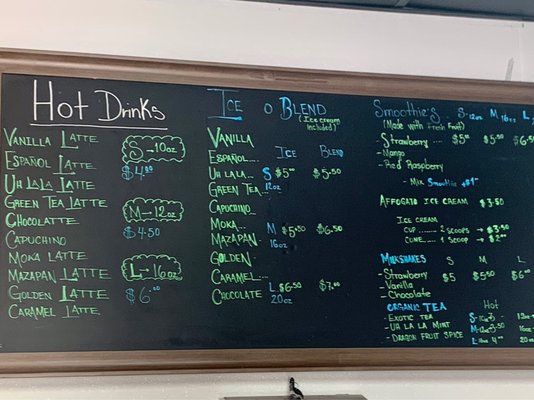 Hot Drinks
Vanilla Latte
Español Latte
Uh la la Latte
Green Tea Latte
Chocolatte
Capuchino
Moka Latte
Mazapan Latte
Golden Latte
Caramel Latte
S → 10oz
M → 12oz
$4.50
L → 16oz
$6.00
Ice o Blend
(Ice cream
included)
Vanilla
Español... Ice Blend
Uh la la... S $5.00 $5.50
Green Tea... 12oz
Capuchino
Moka... M $5.50 $6.50
Mazapan 16oz
Golden
Caramel...
Chocolate L $6.50 $7.00
20oz
Smoothie's S-12oz M 16oz L
(Made with fresh Fruit)
- Strawberry .... $5.00 $5.50 $6.50
- Mango
- Red Raspberry
- Mix Smoothie +$1.00
Affogato Ice Cream $3.50
Ice Cream
Cup ........ 2 scoops → $3.50
Cone ..... 1 scoop →
Milkshakes S M L
- Strawberry $5 $5.50 $6.00
- Vanilla
- Chocolate
Organic Tea Hot
- Exotic Tea
- Uh la la Mint
- Dragon Fruit Spice